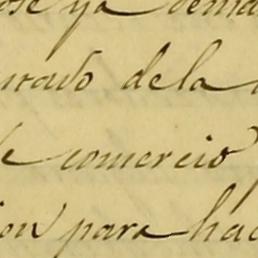 ose ya dema
urado dela
de comercio
ion para hac